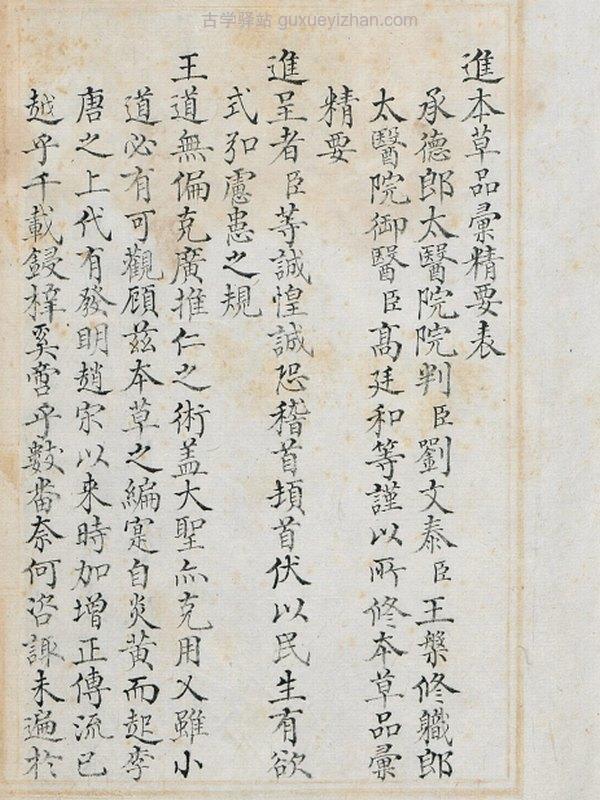 古学驿站 guxueyizhan.com
進本草品彙精要表
承德郎太醫院院判臣劉文泰臣王槃修職郎
太醫院御醫臣高廷和等謹以所修本草品彙
精要
進呈者臣等誠惶誠恐稽首頓首伏以民生有欲
式弘慮患之規
王道無偏克廣推仁之術蓋大聖亦克用乂雖小
道必有可觀顧茲本草之編寔自炎黃而起李
唐之上代有發明趙宋以來時加增正傳流已
越乎千載鋟梓奚啻乎數畨奈何咨諏未遍於